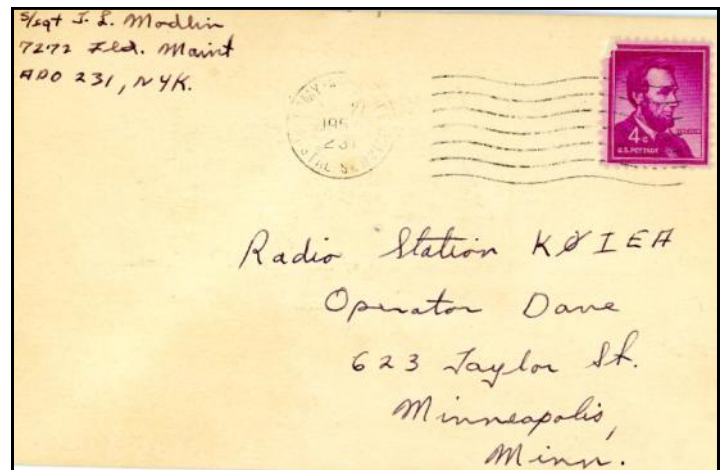 S/sgt J. L. Modlin
7272 Fld. Maint
APO 231, NYK.
195
231
4¢
U.S. POSTAGE
Radio Station KØIEA
Operator Dave
623 Taylor St.
Minneapolis,
Minn.